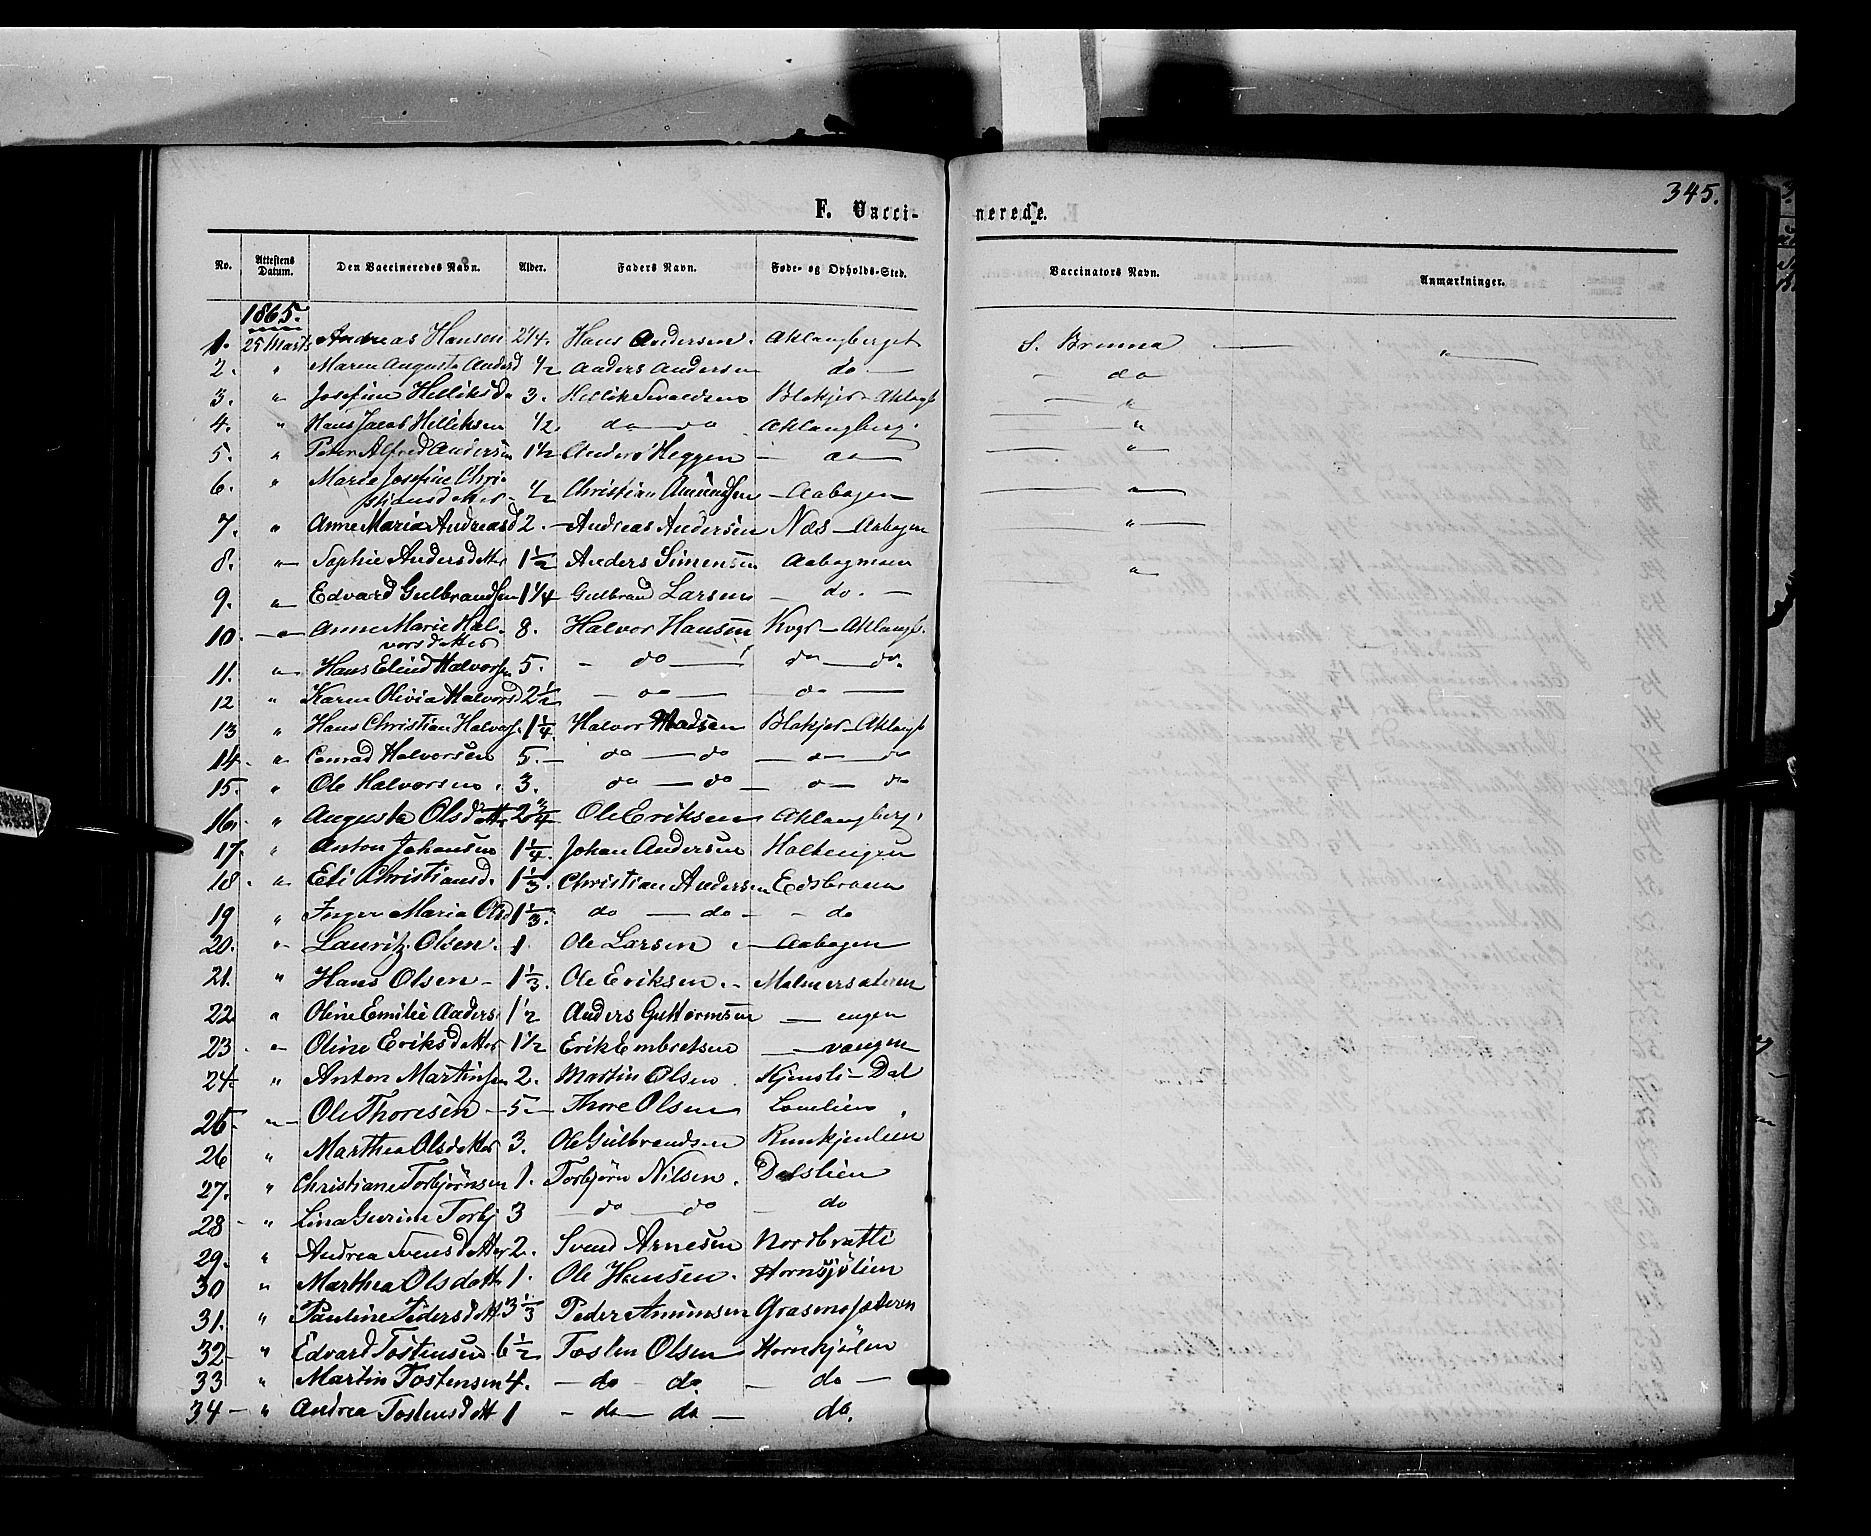 345.
F. Vaccinerede.
No. Attestens Datum. Den Vaccineredes Navn. Alder. Faders Navn. Føde- og Opholds-Sted. Vaccinators Navn. Anmærkninger.
1865.
1. 25 Marts Andreas Hansen 2 1/4. Hans Andersen. Aklangberget S. Brunna — "
2. " Maren Augusta Andersd 1/2 Anders Andersen do — do
3. " Josefine Helliksd. 3. Hellik Blakjer - "
4. " Hans Jacob Helliksen 1/2. do do Aklangberg. "
5. " Peter Alfred Andersen 1 1/2 Anders Heggen — do — "
6. " Maria Josefine Chri-
stiansdatter - 1/2 Christian Amundsen — Aabogen — "
7. " Anne Maria Andreasd 2. — Andreas Andersen Næs — Aabogen "
8. " Sophie Andersdatter 1 1/2 Anders Simensen Aabogmoen "
9. " Edvard Gulbrandsen 1 1/4 Gulbrand Larsen — do. —
10. — " — Anne Marie Hal-
vorsdatter 8. Halvor Hansen — Aklangb.
11. " Hans Halvorsen 5. — do — do — do.
12 " Karen Olivia Halvorsd 2 1/2 — do — do —
13 " Hans Christian Halvors. 1 1/4. Halvor Madsen Blakjer - Aklangb
14. " Conrad Halvorsen 5. — do — do — do — do
15. " Ole Halvorsen. 3. do — do — do do
16. " Augusta Olsdatter 2 3/4 Ole Eriksen Aklangberg.
17. " Anton Johansen 1 1/4. Johan Andersen Holtengen
18. " Eli Christiansd. 1 1/3. Christian Andersen Eidsbraaten
19 " Inger Maria Olsd 1 1/3. do — do — — do
20. " Lauritz Olsen. 1. Ole Larsen. — Aabogen
21. " Hans Olsen — 1 1/3. Ole Eriksen. — Malmersæteren
22 " Oline Emilie Anders. 1 1/2 Anders Guttormsen — engen
23 " Oline Eriksdatter 1 1/2 Erik Embretsen — vangen
24. " Anton Martinsen 2. Martin Olsen. Kjensli - Dal
25. " Ole Thoresen — 5 — Thore Olsen
26 " Marthea Olsdatter 3. Ole Gulbrandsen
27. " Christiane Torbjørnsen 1. Torbjørn Nilsen. Dalslien
28 " Lina Gurine Torbj 3 — do — do — do
29. " Andrea Svensdatter 2. Svend Arnesen Nordbratti
30 " Marthea Olsdatt. 1. Ole Hansen. Hornsjølien
31. " Pauline Pedersdatt 3 1/3 Peder Amundsen Grasmosæteren
32 " Edvard Tostensen 6 1/2 Tosten Olsen Hornkjølen
33 " Martin Tostensen 4. — do — do — do —
34 — " Andrea Tostensdatt 1 — do — do — do.